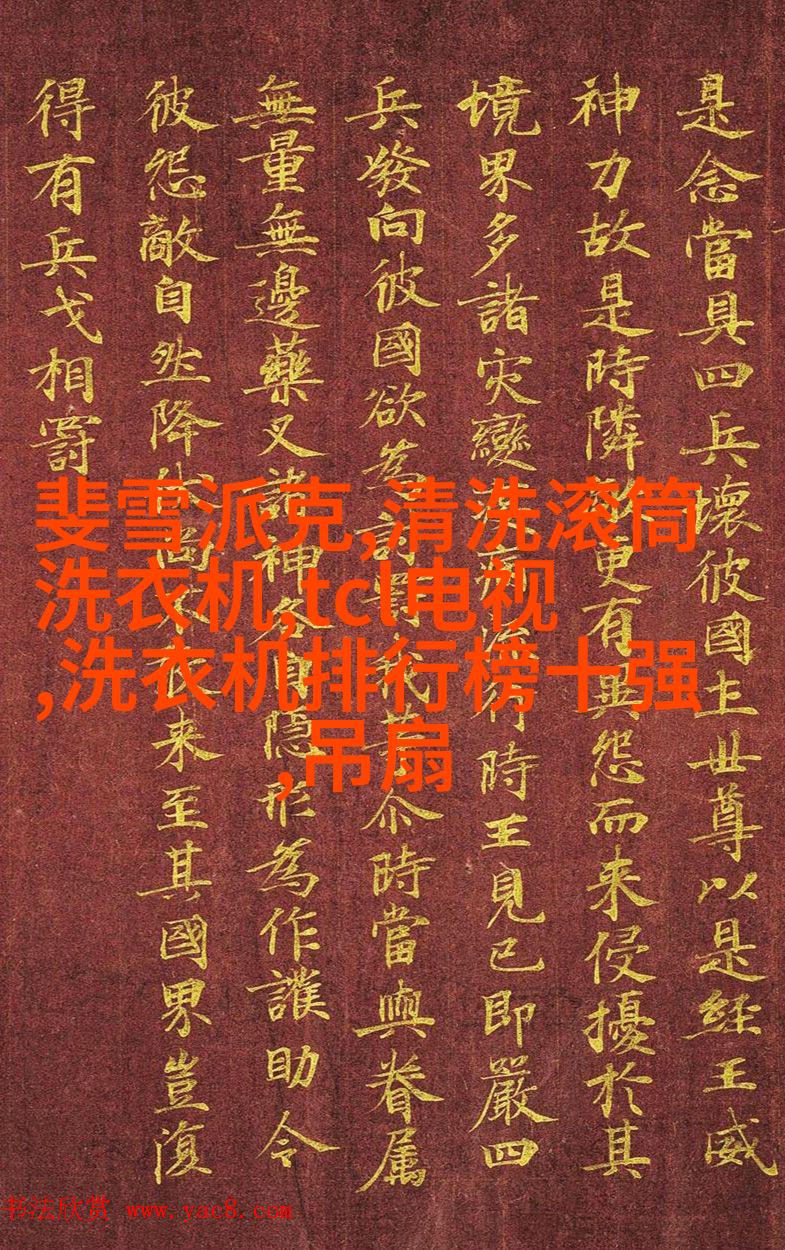 是念當具四兵壞彼國土世尊以是經王威
神力故是時隣更有異怨而来侵擾於其
境界多諸灾變病行時王見已即嚴四
兵發向彼國欲為討罰我等尒時當與眷属
無量無邊藥叉諸神各自隱形為作護助令
彼怨敵自然降伏尚不来至其國界豈復
得有兵戈相罸
斐雪派克,清洗滚筒
洗衣机,tcl电视
,洗衣机排行榜十强
,吊扇
书法欣赏 www.yac8.com